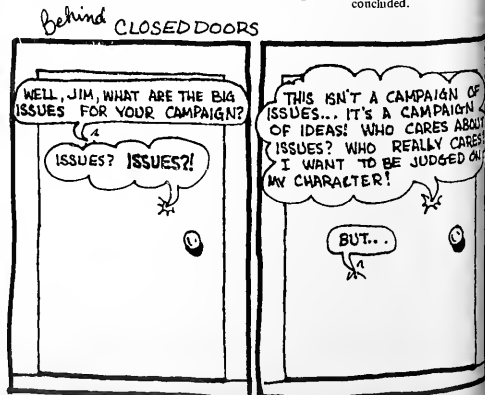 concluded.
Behind CLOSED DOORS
WELL, JIM, WHAT ARE THE BIG
ISSUES FOR YOUR CAMPAIGN?
ISSUES? ISSUES?!
THIS ISN'T A CAMPAIGN OF
ISSUES... IT'S A CAMPAIGN
OF IDEAS! WHO CARES ABOUT
ISSUES? WHO REALLY CARES?
I WANT TO BE JUDGED ON
MY CHARACTER!
BUT...